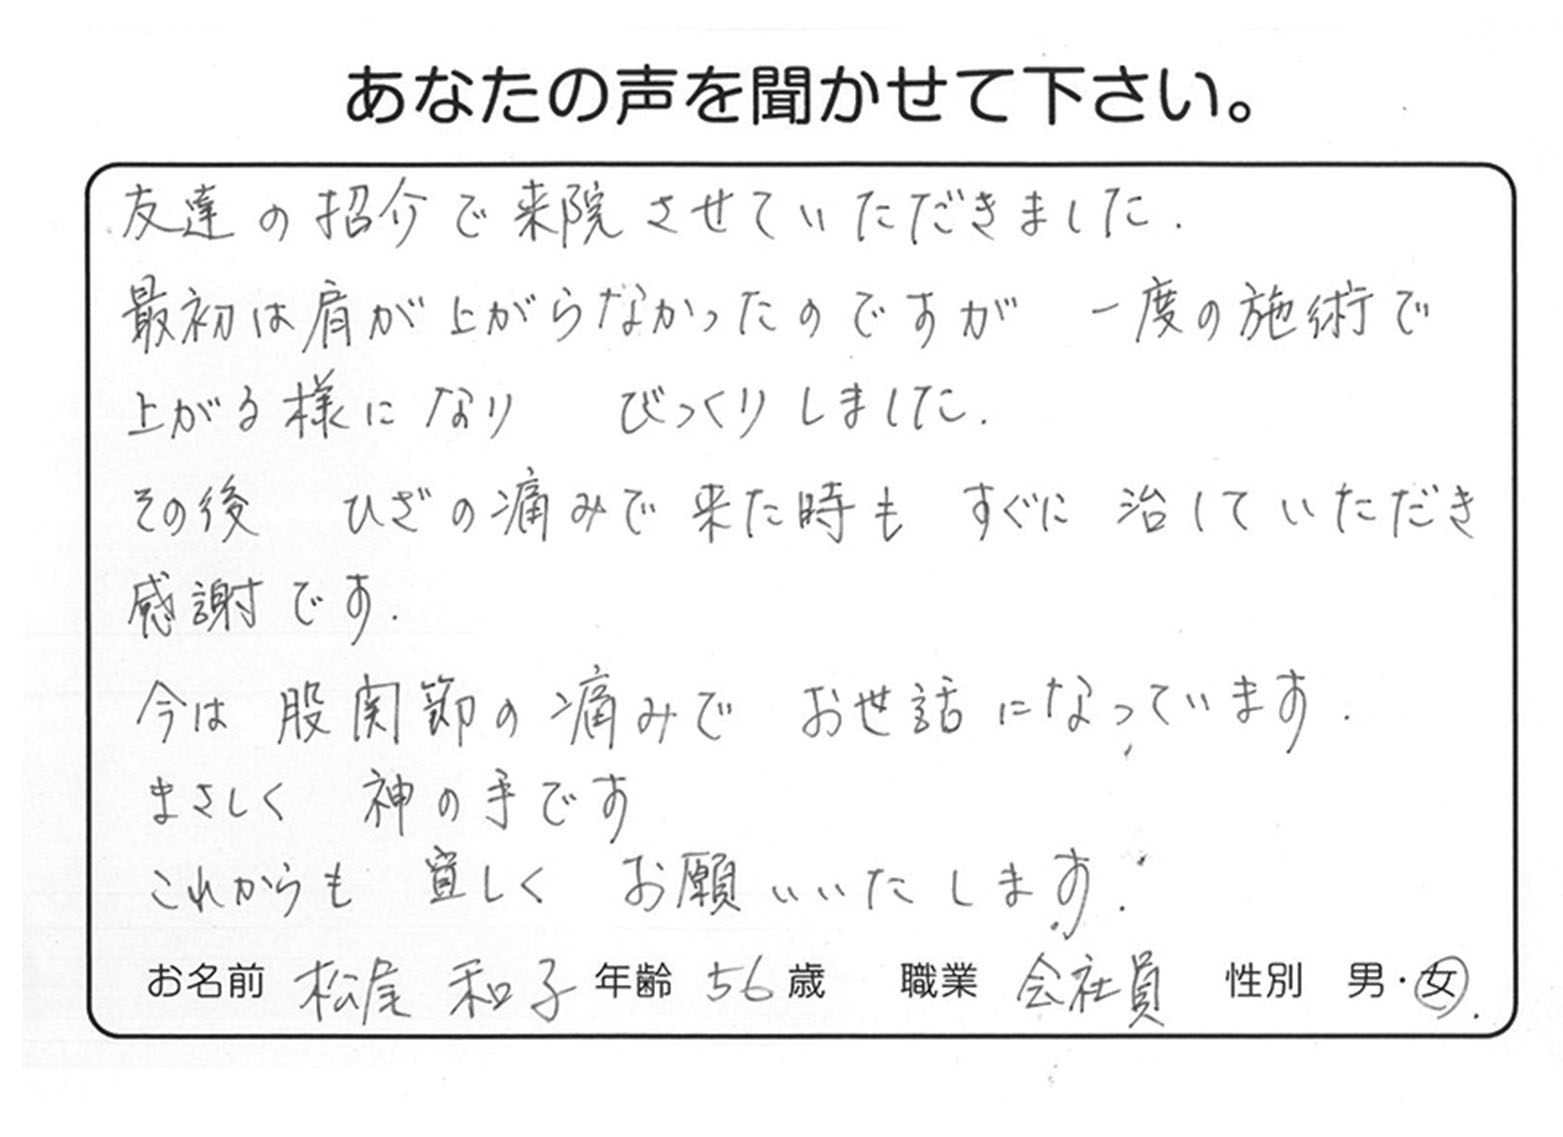 あなたの声を聞かせて下さい。
友達の招介で来院させていただきました.
最初は肩が上がらなかったのですが 一度の施術で
上がる様になり びっくりしました.
その後 ひざの痛みで来た時も すぐに 治していただき
感謝です.
今は 股関節の痛みで お世話になっています.
まさしく 神の手です
これからも 宜しく お願いいたします.
お名前 松尾 和子 年齢 56 歳 職業 会社員 性別 男・女.